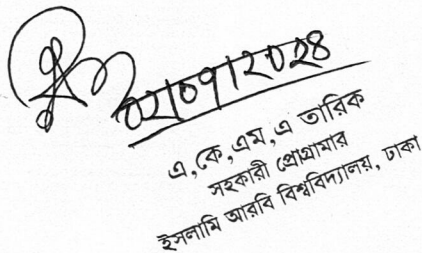 ০২|০৭|২০২৪
এ,কে,এম,এ তারিক
সহকারী প্রোগ্রামার
ইসলামি আরবি বিশ্ববিদ্যালয়, ঢাকা